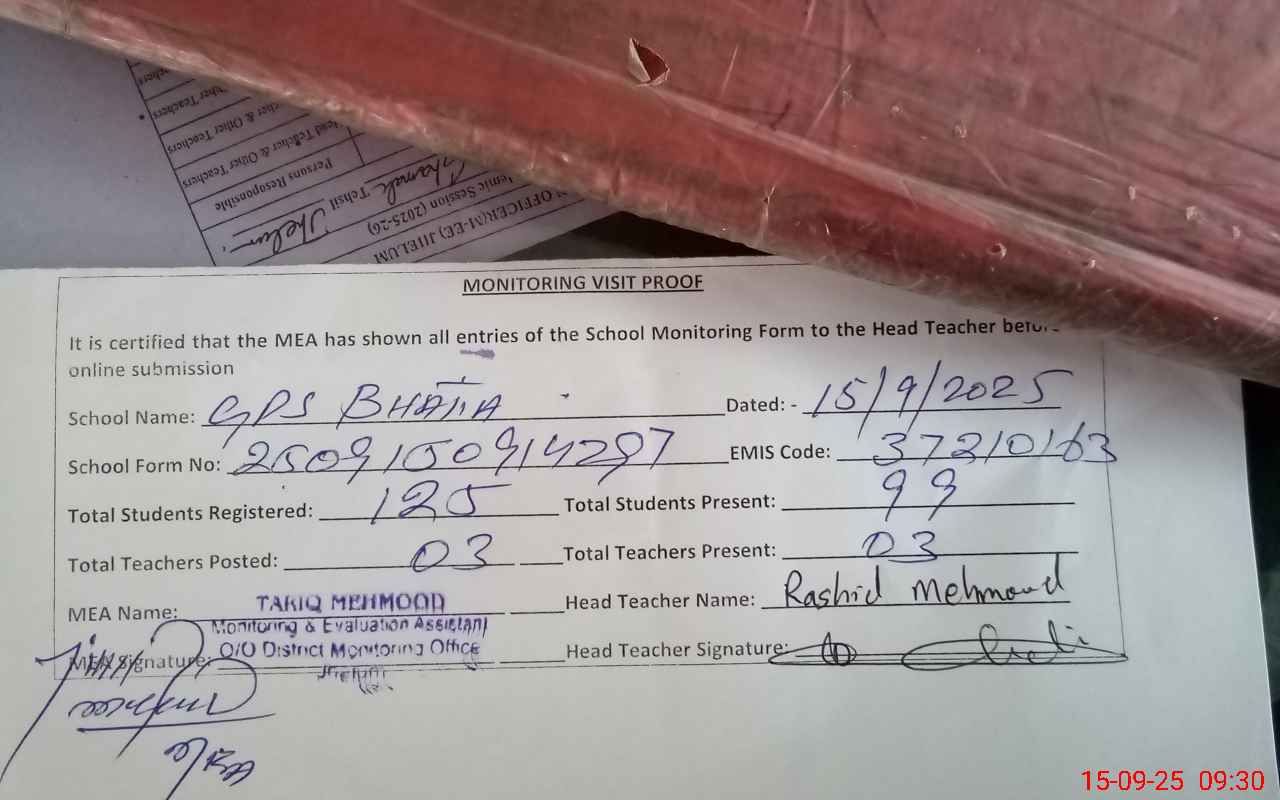 MONITORING VISIT PROOF
It is certified that the MEA has shown all entries of the School Monitoring Form to the Head Teacher before
online submission
School Name: GPS BHATIA Dated: - 15/9/2025
School Form No: 2509150914297 EMIS Code: 37210163
Total Students Registered: 125 Total Students Present: 99
Total Teachers Posted: 03 Total Teachers Present: 03
MEA Name: TARIQ MEHMOOD Head Teacher Name: Rashid Mehmood
Monitoring & Evaluation Assistant
MEA Signature: O/O District Monitoring Office Head Teacher Signature:
Jhelum
OFFICER(M-EE) JHELUM
emic Session (2025-26)
Tehsil Jhelum
Persons Resoponsible
Head Teacher & Other Teachers
cher & Other Teachers
ther Teachers
chers
15-09-25 09:30